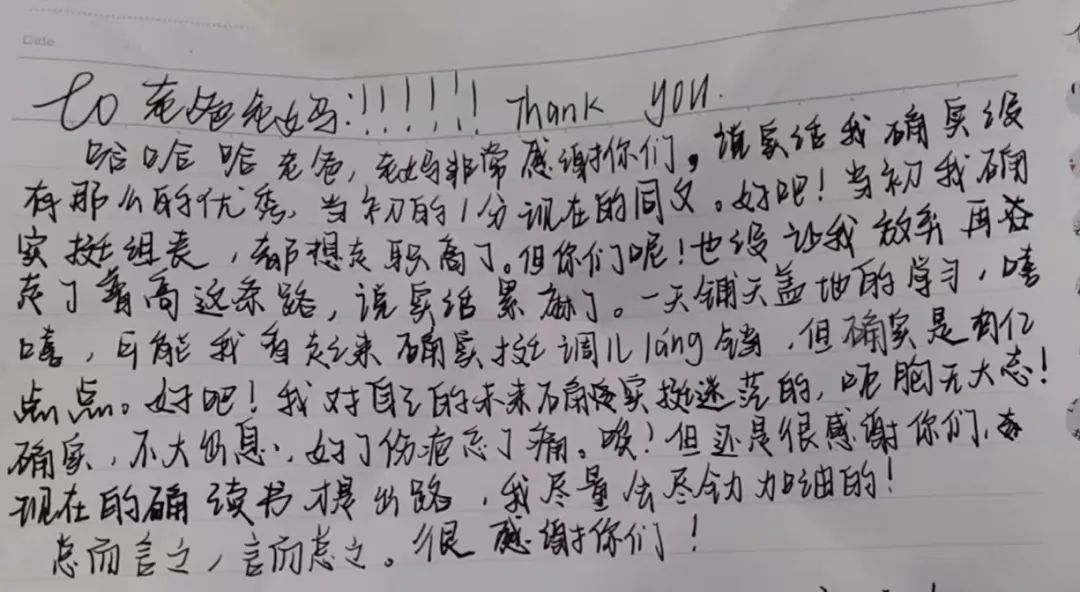 Date
to 老爸老妈:!!!!!! Thank you.
哈哈哈老爸,老妈非常感谢你们。说实话我确实没
有那么的优秀,当初的1分现在的同文。好吧!当初我确
实挺组丧,都想走职高了。但你们呢!也没让我放弃再
走了普高这条路,说实话累麻了。一天铺天盖地的学习,嘻
嘻,可能我看起来确实挺调儿láng铛,但确实是有亿
点点。好吧!我对自己的未来确实挺迷茫的,呃胸无大志!
确实,不大出息,好了伤疤忘了痛。唉!但还是很感谢你们,
现在的确读书才是出路,我尽量会尽全力加油的!
总而言之,言而总之。很感谢你们!